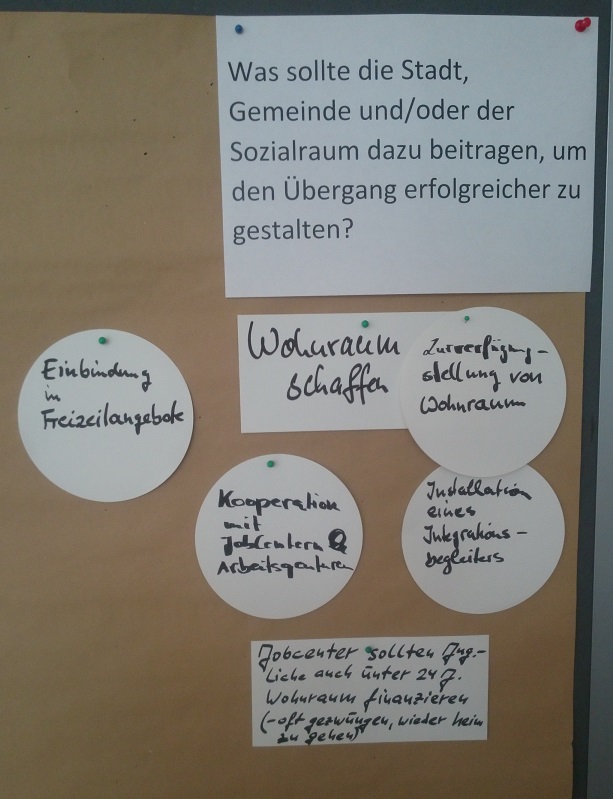 Was sollte die Stadt,
Gemeinde und/oder der
Sozialraum dazu beitragen, um
den Übergang erfolgreicher zu
gestalten?
Wohnraum
schaffen
Zurverfügung-
stellung von
Wohnraum
Einbindung
in
Freizeitangebote
Kooperation
mit
Jobcentern &
Arbeitsagenturen
Installation
eines
Integrations-
begleiters
Jobcenter sollten Jug.-
liche auch unter 24 J.
Wohnraum finanzieren
(-oft gezwungen, wieder heim
zu gehen)